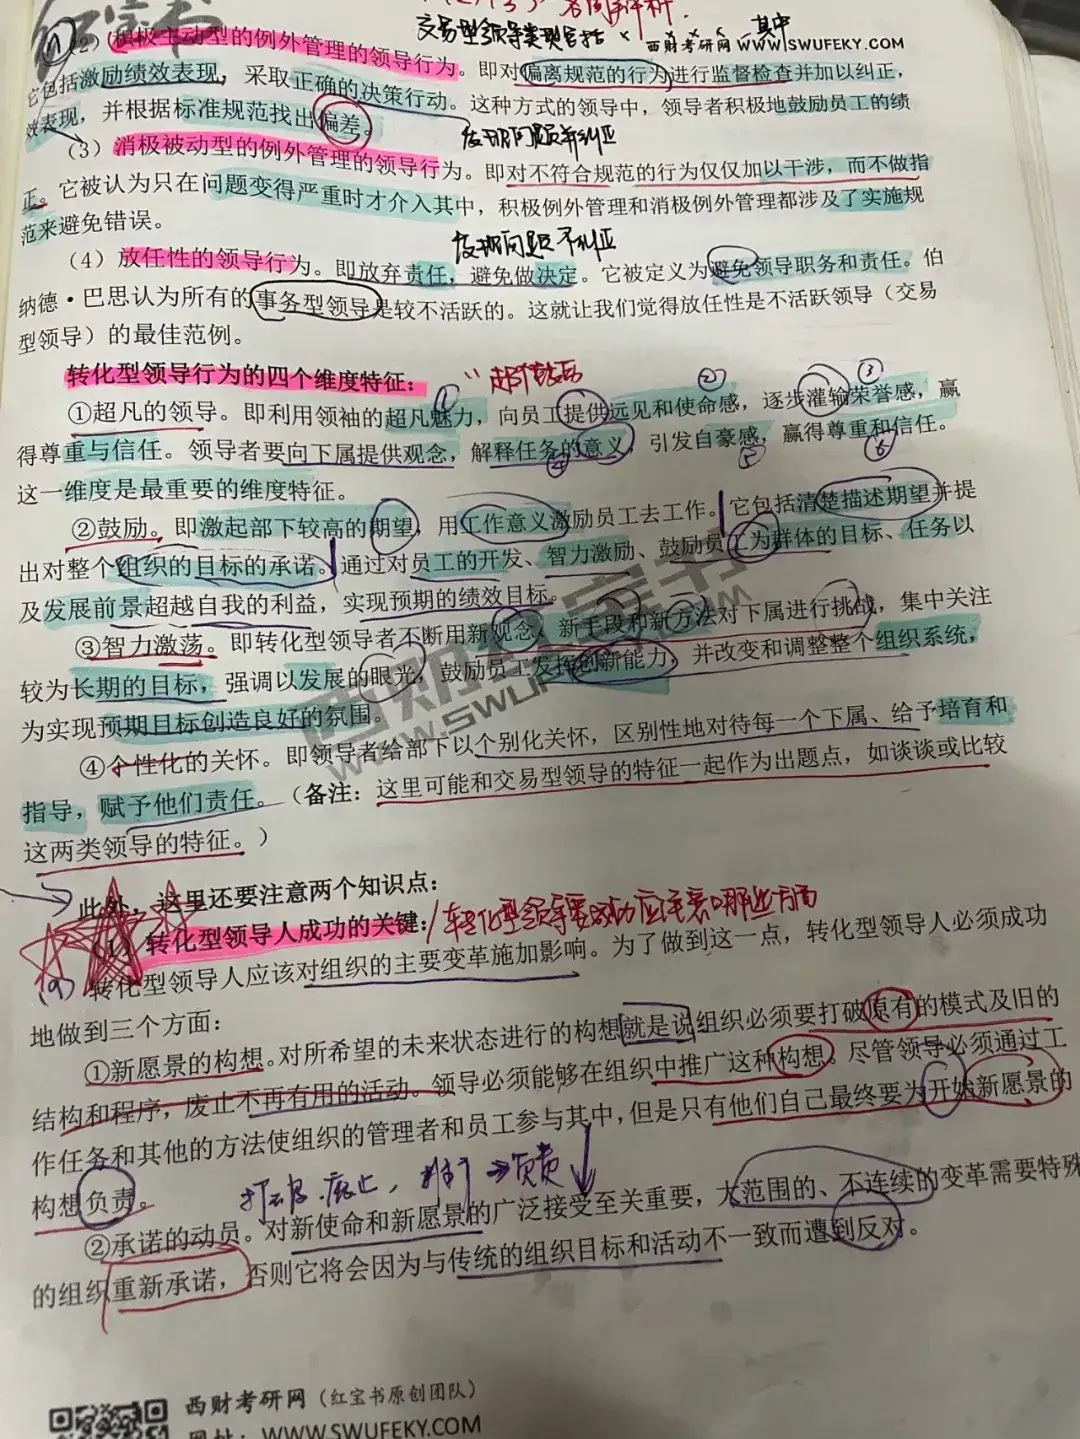 红宝书
交易型领导类型包括
其中
西财考研网 WWW.SWUFEKY.COM
(2)积极主动型的例外管理的领导行为。即对偏离规范的行为进行监督检查并加以纠正,
它包括激励绩效表现,采取正确的决策行动。这种方式的领导中,领导者积极地鼓励员工的绩
效表现,并根据标准规范找出偏差。
发现问题并纠正
(3)消极被动型的例外管理的领导行为。即对不符合规范的行为仅仅加以干涉,而不做指
正。它被认为只在问题变得严重时才介入其中,积极例外管理和消极例外管理都涉及了实施规
范来避免错误。
发现问题不纠正
(4)放任性的领导行为。即放弃责任,避免做决定。它被定义为避免领导职务和责任。伯
纳德·巴思认为所有的事务型领导是较不活跃的。这就让我们觉得放任性是不活跃领导(交易
型领导)的最佳范例。
转化型领导行为的四个维度特征:
①超凡的领导。即利用领袖的超凡魅力,向员工提供远见和使命感,逐步灌输荣誉感,赢
得尊重与信任。领导者要向下属提供观念,解释任务的意义,引发自豪感,赢得尊重和信任。
这一维度是最重要的维度特征。
②鼓励。即激起部下较高的期望,用工作意义激励员工去工作。它包括清楚描述期望并提
出对整个组织的目标的承诺。通过对员工的开发、智力激励、鼓励员工为群体的目标、任务以
及发展前景超越自我的利益,实现预期的绩效目标。
③智力激荡。即转化型领导者不断用新观念、新手段和新方法对下属进行挑战,集中关注
较为长期的目标,强调以发展的眼光,鼓励员工发挥创新能力,并改变和调整整个组织系统,
为实现预期目标创造良好的氛围。
④个性化的关怀。即领导者给部下以个别化关怀,区别性地对待每一个下属、给予培育和
指导,赋予他们责任。(备注:这里可能和交易型领导的特征一起作为出题点,如谈谈或比较
这两类领导的特征。)
西财红宝书
WWW.SWUFEKY.COM
此外,这里还要注意两个知识点:
(1)转化型领导人成功的关键:转化型领导要成功应注意哪些方面
转化型领导人应该对组织的主要变革施加影响。为了做到这一点,转化型领导人必须成功
地做到三个方面:
①新愿景的构想。对所希望的未来状态进行的构想就是说组织必须要打破原有的模式及旧的
结构和程序,废止不再有用的活动。领导必须能够在组织中推广这种构想。尽管领导必须通过工
作任务和其他的方法使组织的管理者和员工参与其中,但是只有他们自己最终要为开始新愿景的
构想负责。
打破.废止,推广→负责
②承诺的动员。对新使命和新愿景的广泛接受至关重要,大范围的、不连续的变革需要特殊
的组织重新承诺,否则它将会因为与传统的组织目标和活动不一致而遭到反对。
西财考研网(红宝书原创团队)
网址:WWW.SWUFEKY.COM